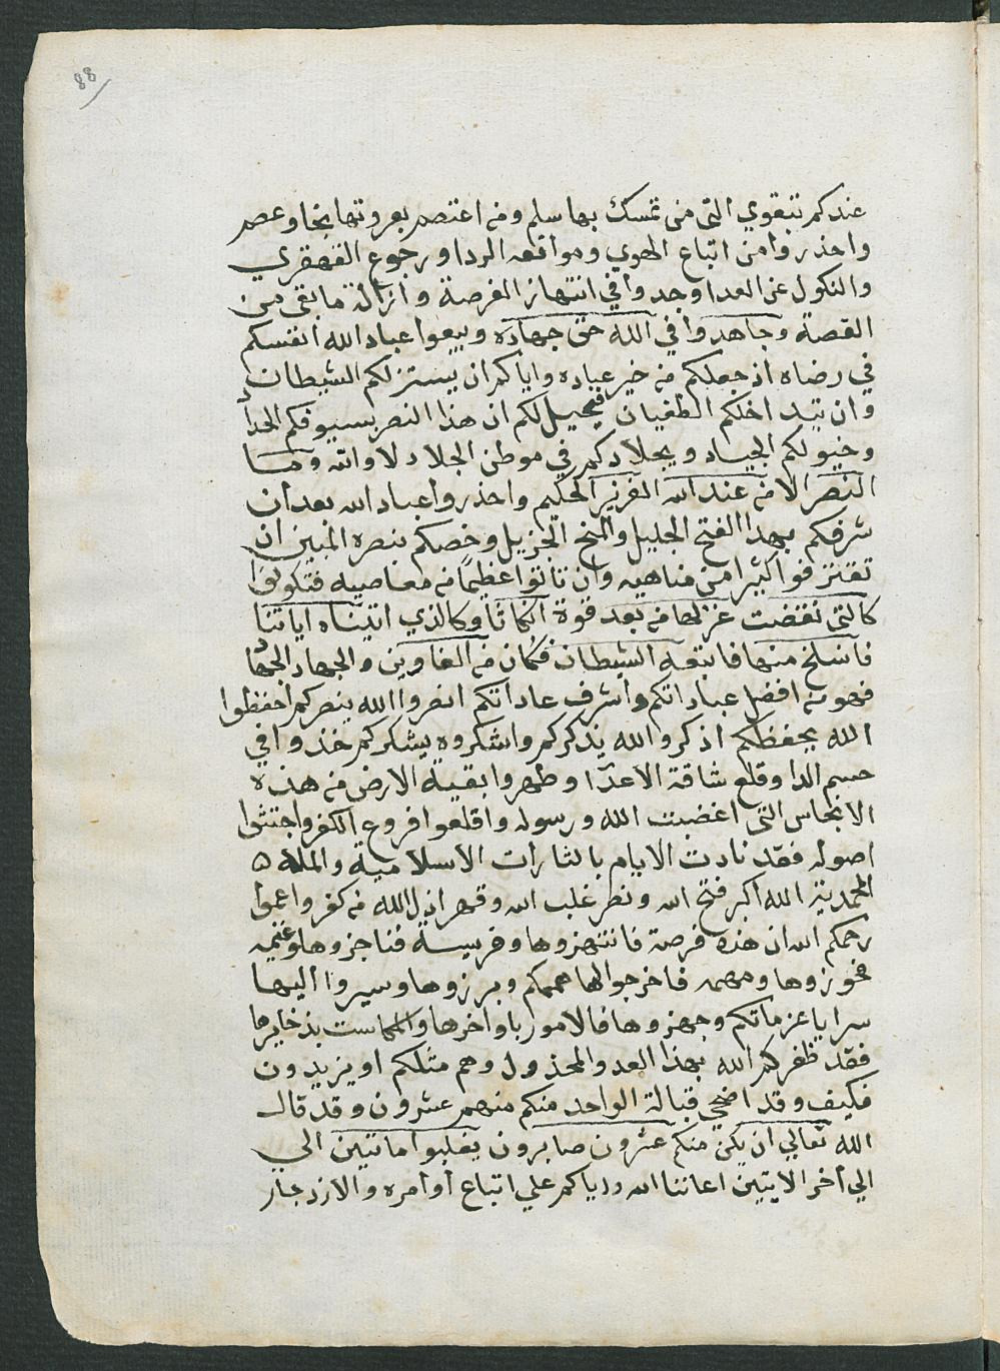 88
عندكم بتقوي التى من تمسك بها سلم ومن اعتصم بعروتها نجا وعصم
واحذروا من اتباع الهوي وموافقه الردا ورجوع القهقري
والنكول عن العدا وجدوا في انتهاز الفرصة وازالة ما بقى من
القصة وجاهدوا في الله حق جهاده وبيعوا عباد الله انفسكم
في رضاه اذ جعلكم من خير عباده واياكم ان يستزلكم الشيطان
وان يتداخلكم الطغيان فيخيل لكم ان هذا النصر بسيوفكم الحداد
وخيولكم الجياد وبجلادكم في موطن الجلاد لا والله وما
النصر الا من عند الله العزيز الحكيم واحذروا عباد الله بعد ان
شرفكم بهذا الفتح الجليل والمنح الجزيل وخصكم بنصره المبين ان
تقترفوا كثيرا من مناهيه وان تاتوا عظيما من معاصيه فتكونوا
كالتى نقضت غزلها من بعد قوة انكاثا وكالذي اتيناه اياتنا
فانسلخ منها فاتبعه الشيطان فكان من الغاوين والجهاد الجهاد
فهو من افضل عباداتكم واشرف عاداتكم انصروا الله ينصركم احفظوا
الله يحفظكم اذكروا الله يذكركم واشكروه يشكركم خذوا في
حسم الدا وقلع شاقة الاعدا وطهروا بقية الارض من هذه
الانجاس التى اغضبت الله ورسوله واقلعوا فروع الكفر واجتثوا
اصوله فقد نادت الايام بالثارات الاسلامية والملة ٥
المحمدية الله اكبر فتح الله ونصر غلب الله وقهر اذل الله من كفر واعلموا
رحمكم الله ان هذه فرصة فانتهزوها وفريسة فناجزوها وغنيمه
فحوزوها ومهمه فاخرجوا لها هممكم وبرزوها وسيروا اليها
سرايا عزماتكم وجهزوها فالامور باواخرها والمكاسب بذخايرها
فقد ظفركم الله بهذا العدو المخذول وهم مثلكم او يزيدون
فكيف وقد اضحي قبالة الواحد منكم منهم عشرون وقد قال
الله تعالي ان يكن منكم عشرون صابرون يغلبوا ماتين الي
الي اخر الايتين اعاننا الله واياكم علي اتباع اوامره والازدجار